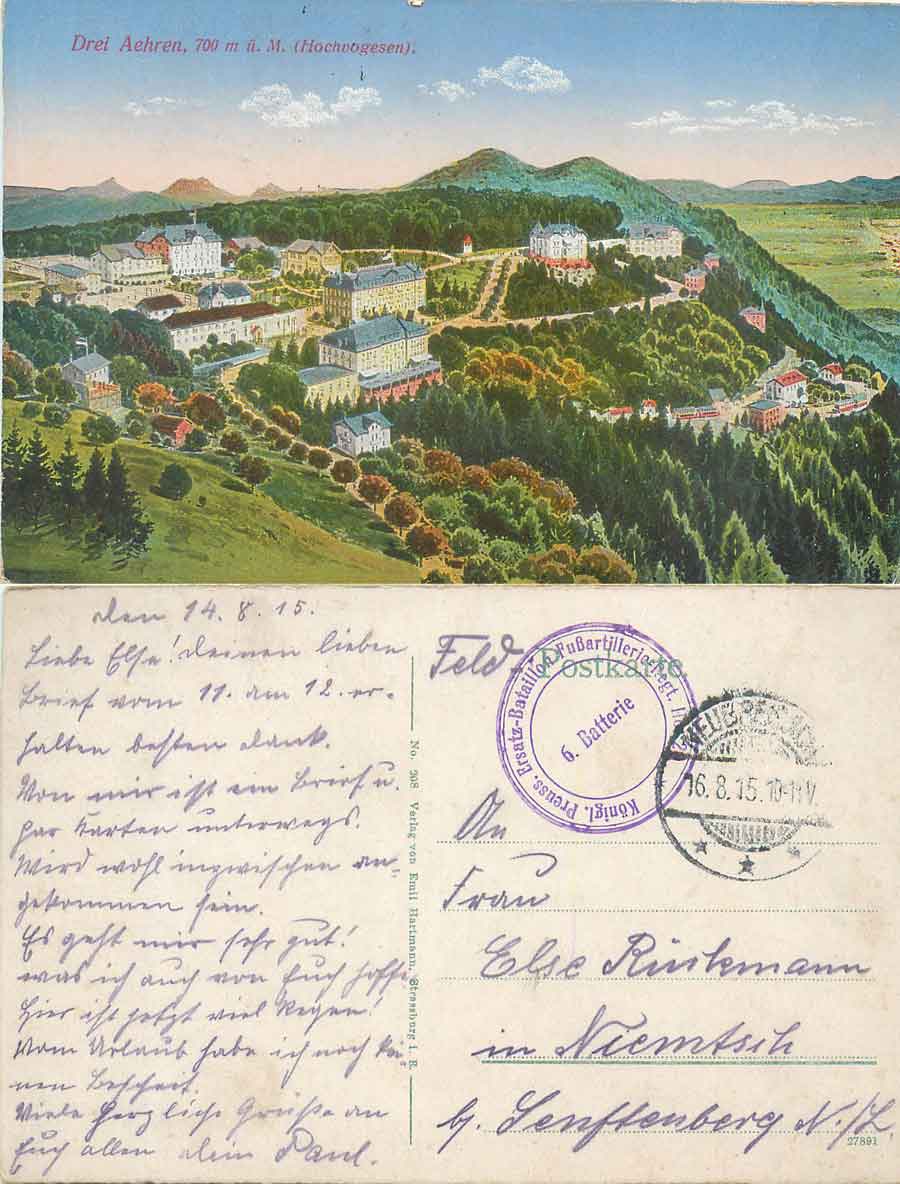 Drei Aehren, 700 m ü. M. (Hochvogesen).
den 14.8.15.
Liebe Else! Deinen lieben
Brief vom 11. am 12. er-
halten besten Dank.
Von mir ist ein Brief u.
par Karten unterwegs.
Wird wohl inzwischen an-
gekommen sein.
Es geht mir sehr gut!
was ich auch von Euch hoffe.
Hier ist jetzt viel Regen!
Vom Urlaub habe ich noch kei-
nen Bescheit.
Viele herzliche Grüße an
Euch allen dein Paul.
No. 208 Verlag von Emil Hartmann, Strassburg i. E.
Feld-Postkarte
Königl. Preuss. Ersatz-Bataillon Fußartillerie-Regt.
6. Batterie
16.8.15.10-11V
An
Frau
Else Rückmann
in Niemtsch
b. Senftenberg N./L.
27891